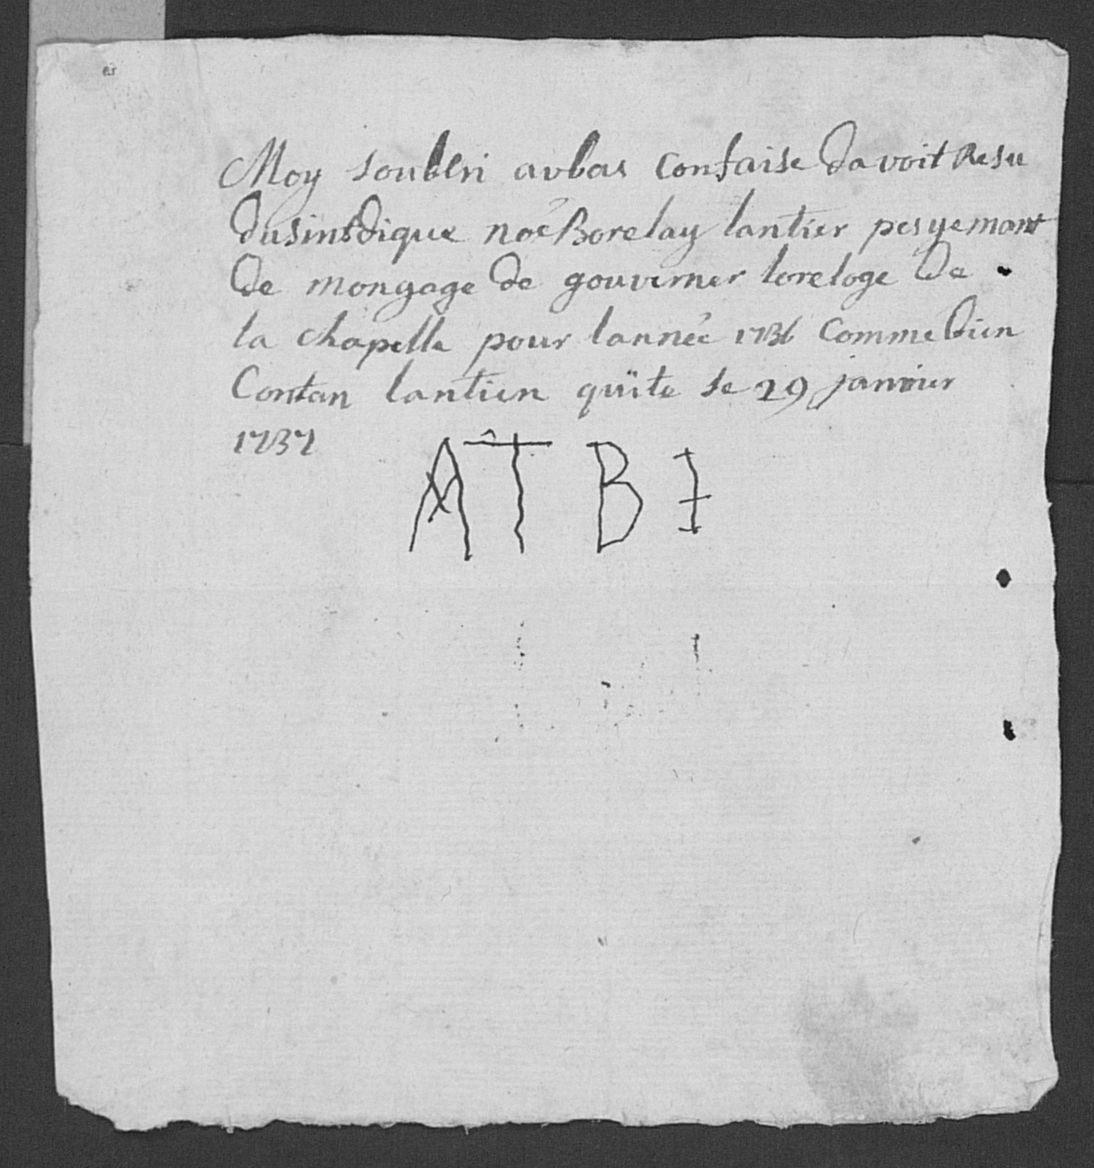 Moy soubtri aubas Confaise davoit Resu
du sintdique noé Borelay lantier pesyemant
de mongage de gouverner loreloge de
la chapelle pour lannéé 1736 Comme bien
Contan lantien quite le 29 janvier
1737
A T B I